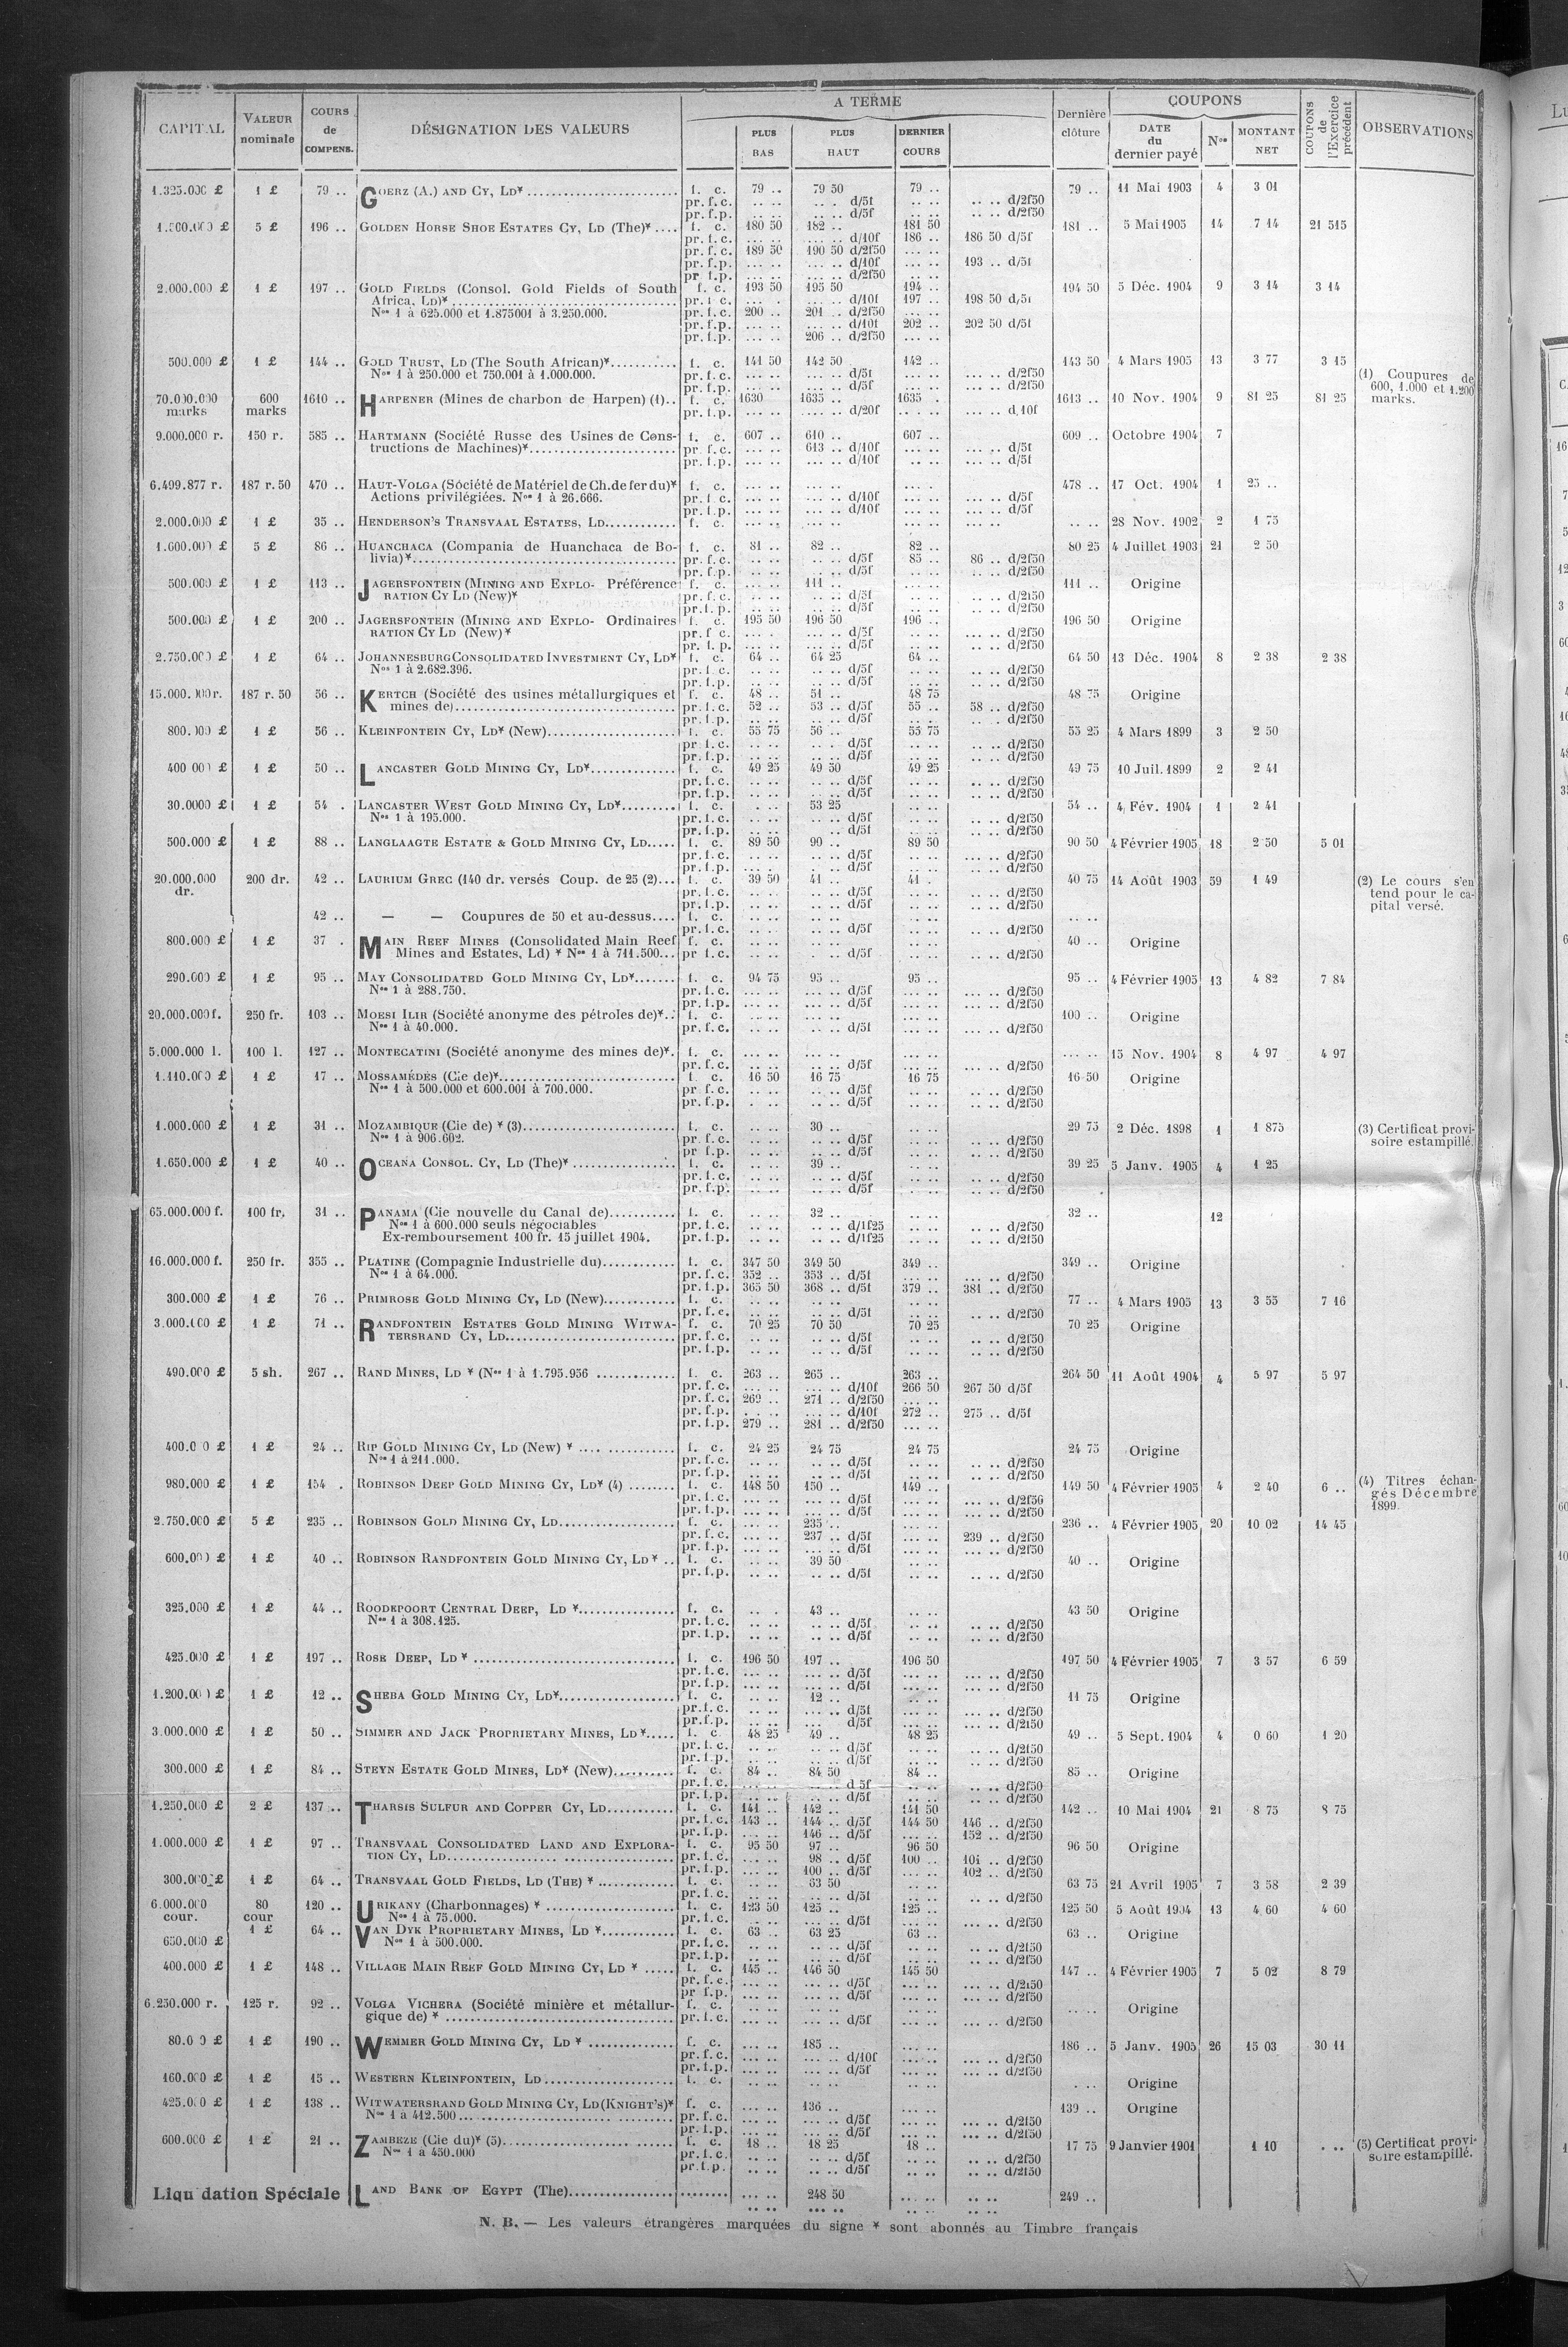 CAPITAL VALEUR nominale COURS de COMPENS. DÉSIGNATION DES VALEURS A TERME PLUS BAS PLUS HAUT DERNIER COURS Dernière clôture COUPONS DATE du dernier payé Nos MONTANT NET COUPONS de l'Exercice précédent OBSERVATIONS
1 £ 79 .. GOERZ (A.) AND CY, LD* f. c. 79 .. 79 50 79 .. 79 .. 11 Mai 1903 4 3 01
pr. f.c. .. .. .. . d/5f .. .. .. .. d/2f50
pr. f.p. .. .. .. .. d/5f .. .. .. .. d/2f50
5 £ 196 .. GOLDEN HORSE SHOE ESTATES CY, LD (The)* .... f. c. 180 50 182 .. 181 50 181 .. 5 Mai 1905 14 7 14 21 515
pr. f.c. ... .. ... .. d/10f 186 .. 186 50 d/5f
pr. f.c. 189 50 190 50 d/2f50 ... ..
pr. f.p. ... .. ... .. d/10f ... .. 193 .. d/5f
pr f.p. ... .. ... .. d/2f50 ... ..
2.000.000 £ 1 £ 197 .. GOLD FIELDS (Consol. Gold Fields of South f. c. 193 50 195 50 194 .. 194 50 5 Déc. 1904 9 3 14 3 14
Africa, Ld)* pr. f c. ... . ... .. d/10f 197 .. 198 50 d/5f
Nos 1 à 625.000 et 1.875001 à 3.250.000. pr. f.c. 200 .. 201 .. d/2f50 ... ..
pr. f.p. ... .. ... .. d/10f 202 .. 202 50 d/5f
pr. f.p. ... .. 206 .. d/2f50 ... ..
500.000 £ 1 £ 144 .. GOLD TRUST, LD (The South African)* f. c. 141 50 142 50 142 .. 143 50 4 Mars 1905 13 3 77 3 15
Nos 1 à 250.000 et 750.001 à 1.000.000. pr. f.c. ... .. ... .. d/5f ... .. ... .. d/2f50 (1) Coupures de
pr. f.p. ... .. ... .. d/5f ... .. ... .. d/2f50 600, 1.000 et 1.200
70.000.000 600 1610 .. HARPENER (Mines de charbon de Harpen) (1).. f. c. 1630 1635 .. 1635 . 1613 .. 10 Nov. 1904 9 81 25 81 25 marks.
marks marks pr. f.p. ... .. .... .. d/20f .. .. ... .. d.10f
9.000.000 r. 150 r. 585 .. HARTMANN (Société Russe des Usines de Cons- f. c. 607 .. 610 .. 607 .. 609 .. Octobre 1904 7
tructions de Machines)* pr. f.c. ... .. 613 .. d/10f ... .. ... .. d/5f
pr. f.p. ... .. ... .. d/10f ... .. ... .. d/5f
6.499.877 r. 187 r. 50 470 .. HAUT-VOLGA (Société de Matériel de Ch. de fer du)* f. c. ... .. ... .. ... . 478 .. 17 Oct. 1904 1 25 ..
Actions privilégiées. Nos 1 à 26.666. pr. f c. ... .. ... .. d/10f ... .. ... .. d/5f
pr. f.p. ... .. ... .. d/10f ... .. ... .. d/5f
2.000.000 £ 1 £ 35 .. HENDERSON'S TRANSVAAL ESTATES, LD f. c. ... .. ... .. ... .. ... .. .. .. 28 Nov. 1902 2 1 75
1.600.000 £ 5 £ 86 .. HUANCHACA (Compania de Huanchaca de Bo- f. c. 81 .. 82 .. 82 .. 80 25 4 Juillet 1903 21 2 50
livia)* pr. f.c. .. .. .. .. d/5f 85 .. 86 .. d/2f50
pr. f.p. .. .. .. .. d/5f .. .. .. .. d/2f50
500.000 £ 1 £ 113 .. JAGERSFONTEIN (MINING AND EXPLO- Préférence f. c. ... .. 111 .. ... .. 111 .. Origine
RATION CY LD (New)* pr. f.c. ... .. .. .. d/5f ... .. ... .. d/2f50
pr. f. p. .. .. .. .. d/5f .. .. .. .. d/2f50
500.000 £ 1 £ 200 .. JAGERSFONTEIN (MINING AND EXPLO- Ordinaires f. c. 195 50 196 50 196 .. 196 50 Origine
RATION CY LD (New)* pr. f c. ... . ... .. d/5f ... .. ... .. d/2f50
pr. f. p. ... .. ... .. d/5f ... .. ... .. d/2f50
2.750.000 £ 1 £ 64 .. JOHANNESBURG CONSOLIDATED INVESTMENT CY, LD* f. c. 64 .. 64 25 64 .. 64 50 13 Déc. 1904 8 2 38 2 38
Nos 1 à 2.682.396. pr. f.c. .. .. .. .. d/5f .. .. .. .. d/2f50
pr. f.p. .. .. .. .. d/5f .. .. .. .. d/2f50
187 r. 50 56 .. KERTCH (Société des usines métallurgiques et f. c. 48 .. 51 .. 48 75 48 75 Origine
mines de) pr. f.c. 52 .. 53 .. d/5f 55 .. 58 .. d/2f50
pr. f.p. .. .. .. .. d/5f .. .. .. .. d/2f50
1 £ 56 .. KLEINFONTEIN CY, LD* (New) f. c. 55 75 56 .. 55 75 55 25 4 Mars 1899 3 2 50
pr. f.c. .. .. .. . d/5f .. .. .. .. d/2f50
pr. f.p. .. .. .. .. d/5f .. .. .. .. d/2f50
1 £ 50 .. LANCASTER GOLD MINING CY, LD* f. c. 49 25 49 50 49 25 49 75 10 Juil. 1899 2 2 41
pr. f.c. .. .. .. .. d/5f .. .. .. .. d/2f50
pr. f.p. .. .. .. .. d/5f .. .. .. .. d/2f50
30.0000 £ 1 £ 54 . LANCASTER WEST GOLD MINING CY, LD* f. c. . .. 53 25 .. .. 54 .. 4 Fév. 1904 1 2 41
Nos 1 à 195.000. pr. f.c. .. .. .. .. d/5f .. .. .. .. d/2f50
pr. f.p. .. .. .. .. d/5f .. .. .. .. d/2f50
500.000 £ 1 £ 88 .. LANGLAAGTE ESTATE & GOLD MINING CY, LD f. c. 89 50 90 .. 89 50 90 50 4 Février 1905 18 2 50 5 01
pr. f.c. .. .. .. .. d/5f .. .. ... .. d/2f50
pr. f.p. .. .. .. .. d/5f .. .. ... .. d/2f50
20.000.000 200 dr. 42 .. LAURIUM GREC (140 dr. versés Coup. de 25 (2) f. c. 39 50 41 .. 41 . 40 75 14 Août 1903 59 1 49 (2) Le cours s'en
dr. pr. f.c. .. .. .. .. d/5f .. .. .. .. d/2f50 tend pour le ca-
pr. f.p. .. .. .. .. d/5f .. .. .. .. d/2f50 pital versé.
42 .. — — Coupures de 50 et au-dessus.... f. c. .. .. .. .. .. .. .. ..
pr. f.c. .. .. .. .. d/5f .. .. .. .. d/2f50
800.000 £ 1 £ 37 . MAIN REEF MINES (Consolidated Main Reef f. c. .. .. .. .. .. .. 40 .. Origine
Mines and Estates, Ld) * Nos 1 à 711.500... pr f.c. .. .. .. .. d/5f .. .. .. .. d/2f50
290.000 £ 1 £ 95 .. MAY CONSOLIDATED GOLD MINING CY, LD* f. c. 94 75 95 .. 95 .. 95 .. 4 Février 1905 13 4 82 7 84
Nos 1 à 288.750. pr. f.c. .. .. .. .. d/5f .. .. ... .. d/2f50
pr. f.p. .. .. .. .. d/5f .. .. ... .. d/2f50
20.000.000 f. 250 fr. 103 .. MOESI ILIR (Société anonyme des pétroles de)* f. c. .. .. .. .. .. .. 100 .. Origine
Nos 1 à 40.000. pr. f.c. .. .. .. .. d/5f .. .. ... .. d/2f50
5.000.000 l. 100 l. 127 .. MONTECATINI (Société anonyme des mines de)*. f. c. ... .. ... .. ... .. ... .. 15 Nov. 1904 8 4 97 4 97
pr. f.c. ... .. ... .. d/5f ... .. ... .. d/2f50
1.110.000 £ 1 £ 17 .. MOSSAMÉDÈS (Cie de)* f. c. 16 50 16 75 16 75 16 50 Origine
Nos 1 à 500.000 et 600.001 à 700.000. pr f.c. .. .. .. .. d/5f .. .. .. .. d/2f50
pr. f.p. .. . .. .. d/5f .. .. .. .. d/2f50
1.000.000 £ 1 £ 31 .. MOZAMBIQUE (Cie de) * (3) f. c. .. .. 30 .. .. .. 29 75 2 Déc. 1898 1 1 875 (3) Certificat provi-
Nos 1 à 906.602. pr. f.c. .. .. .. .. d/5f .. .. .. .. d/2f50 soire estampillé.
pr f.p. .. .. .. .. d/5f .. .. .. .. d/2f50
1.650.000 £ 1 £ 40 .. OCEANA CONSOL. CY, LD (The)* f. c. .. .. 39 .. .. .. 39 25 5 Janv. 1905 4 1 25
pr. f.c. .. .. .. .. d/5f .. .. .. .. d/2f50
pr. f.p. .. .. .. .. d/5f .. .. .. .. d/2f50
65.000.000 f. 100 fr. 31 .. PANAMA (Cie nouvelle du Canal de) f. c. .. .. 32 .. .. .. 32 .. 12
Nos 1 à 600.000 seuls négociables pr. f.c. .. .. .. .. d/1f25 .. .. .. .. d/2f50
Ex-remboursement 100 fr. 15 juillet 1904. pr. f.p. .. .. .. .. d/1f25 .. .. .. .. d/2f50
16.000.000 f. 250 fr. 355 .. PLATINE (Compagnie Industrielle du) f. c. 347 50 349 50 349 .. 349 .. Origine
Nos 1 à 64.000. pr. f.c. 352 .. 353 .. d/5f ... .. ... .. d/2f50
pr. f.p. 365 50 368 .. d/5f 379 .. 381 .. d/2f50
300.000 £ 1 £ 76 .. PRIMROSE GOLD MINING CY, LD (New) f. c. .. .. .. .. .. .. 77 .. 4 Mars 1905 13 3 55 7 16
pr. f.c. .. .. .. .. d/5f .. .. .. .. d/2f50
3.000.000 £ 1 £ 71 .. RANDFONTEIN ESTATES GOLD MINING WITWA- f. c. 70 25 70 50 70 25 70 25 Origine
TERSRAND CY, LD pr. f.c. .. .. .. .. d/5f .. .. .. .. d/2f50
pr. f.p. .. .. .. .. d/5f .. .. .. .. d/2f50
490.000 £ 5 sh. 267 .. RAND MINES, LD * (Nos 1 à 1.795.956 f. c. 263 .. 265 .. 263 .. 264 50 11 Août 1904 4 5 97 5 97
pr. f.c. ... .. ... .. d/10f 266 50 267 50 d/5f
pr. f.c. 269 .. 271 .. d/2f50 ... ..
pr. f.p. . .. ... .. d/10f 272 .. 275 .. d/5f
pr. f.p. 279 .. 281 .. d/2f50
1 £ 24 .. RIP GOLD MINING CY, LD (New) * f. c. 24 25 24 75 24 75 24 75 Origine
Nos 1 à 211.000. pr. f.c. .. .. .. .. d/5f .. .. .. .. d/2f50
pr. f.p. .. .. .. .. d/5f .. .. .. .. d/2f50
980.000 £ 1 £ 154 . ROBINSON DEEP GOLD MINING CY, LD* (4) f. c. 148 50 150 .. 149 .. 149 50 4 Février 1905 4 2 40 6 .. (4) Titres échan-
pr. f.c. ... .. ... .. d/5f ... .. ... .. d/2f50 gés Décembre
pr. f.p. ... .. ... .. d/5f ... .. ... .. d/2f50 1899.
2.750.000 £ 5 £ 235 .. ROBINSON GOLD MINING CY, LD f. c. ... .. 235 .. ... .. 236 .. 4 Février 1905 20 10 02 14 45
pr. f.c. ... .. 237 .. d/5f ... .. 239 .. d/2f50
pr. f.p. ... .. ... .. d/5f ... .. ... .. d/2f50
1 £ 40 .. ROBINSON RANDFONTEIN GOLD MINING CY, LD * .. f. c. .. .. 39 50 .. .. 40 .. Origine
pr. f.p. .. .. .. .. d/5f .. .. .. .. d/2f50
325.000 £ 1 £ 44 .. ROODEPOORT CENTRAL DEEP, LD * f. c. .. . 43 .. .. .. 43 50 Origine
Nos 1 à 308.125. pr. f.c. .. .. .. .. d/5f .. .. .. .. d/2f50
pr. f.p. .. .. .. .. d/5f .. .. .. .. d/2f50
425.000 £ 1 £ 197 .. ROSE DEEP, LD * f. c. 196 50 197 .. 196 50 197 50 4 Février 1905 7 3 57 6 59
pr. f.c. ... .. ... .. d/5f ... .. ... .. d/2f50
pr. f.p. ... .. ... .. d/5f ... .. ... .. d/2f50
1 £ 12 .. SHEBA GOLD MINING CY, LD* f. c. .. .. 12 .. .. .. 11 75 Origine
pr. f.c. .. .. ... .. d/5f .. .. .. .. d/2f50
pr. f.p. .. .. ... d/5f .. .. .. .. d/2f50
3.000.000 £ 1 £ 50 .. SIMMER AND JACK PROPRIETARY MINES, LD* f. c. 48 25 49 .. 48 25 49 .. 5 Sept. 1904 4 0 60 1 20
pr. f.c. .. .. .. .. d/5f .. .. .. .. d/2f50
pr. f.p. .. .. .. .. d/5f .. .. .. .. d/2f50
300.000 £ 1 £ 84 .. STEYN ESTATE GOLD MINES, LD* (New) f. c. 84 .. 84 50 84 .. 85 .. Origine
pr. f.c. .. .. .. .. d 5f .. .. .. .. d/2f50
pr. f.p. .. .. .. .. d/5f .. .. .. .. d/2f50
1.250.000 £ 2 £ 137 .. THARSIS SULFUR AND COPPER CY, LD f. c. 141 .. 142 .. 141 50 142 .. 10 Mai 1904 21 8 75 8 75
pr. f.c. 143 .. 144 .. d/5f 144 50 146 .. d/2f50
pr. f.p. ... .. 146 .. d/5f ... .. 152 .. d/2f50
1.000.000 £ 1 £ 97 .. TRANSVAAL CONSOLIDATED LAND AND EXPLORA- f. c. 95 50 97 .. 96 50 96 50 Origine
TION CY, LD pr. f.c. ... .. 98 .. d/5f 100 .. 101 .. d/2f50
pr. f.p. ... .. 100 .. d/5f ... .. 102 .. d/2f50
300.000 £ 1 £ 64 .. TRANSVAAL GOLD FIELDS, LD (THE) * f. c. .. .. 63 50 .. .. 63 75 21 Avril 1905 7 3 58 2 39
pr. f.c. .. .. .. .. d/5f .. .. .. .. d/2f50
6.000.000 80 120 .. URIKANY (Charbonnages) * f. c. 123 50 125 .. 125 .. 125 50 5 Août 1904 13 4 60 4 60
cour. cour Nos 1 à 75.000. pr. f.c. . .. ... .. d/5f ... .. ... .. d/2f50
1 £ 64 .. VAN DYK PROPRIETARY MINES, LD * f. c. 63 .. 63 25 63 .. 63 .. Origine
650.000 £ Nos 1 à 500.000. pr. f.c. .. .. .. .. d/5f .. .. .. .. d/2f50
pr. f.p. .. .. .. .. d/5f .. .. .. .. d/2f50
400.000 £ 1 £ 148 .. VILLAGE MAIN REEF GOLD MINING CY, LD * f. c. 145 .. 146 50 145 50 147 .. 4 Février 1905 7 5 02 8 79
pr. f.c. ... .. ... .. d/5f ... .. ... .. d/2f50
pr f.p. ... .. ... .. d/5f ... .. ... .. d/2f50
6.250.000 r. 125 r. 92 .. VOLGA VICHERA (Société minière et métallur- f. c. ... .. ... .. ... .. .. .. Origine
gique de) * pr. f.c. ... .. ... .. d/5f ... .. ... .. d/2f50
1 £ 190 .. WEMMER GOLD MINING CY, LD * f. c. ... .. 185 .. ... .. 186 .. 5 Janv. 1905 26 15 03 30 11
pr. f.c. ... .. ... .. d/10f ... .. ... .. d/2f50
pr. f.p. ... .. ... .. d/5f ... .. ... .. d/2f50
160.000 £ 1 £ 15 .. WESTERN KLEINFONTEIN, LD f. c. .. .. .. .. .. .. . .. Origine
1 £ 138 .. WITWATERSRAND GOLD MINING CY, LD (KNIGHT'S)* f. c. ... .. 136 .. ... .. 139 .. Origine
Nos 1 à 412.500 pr. f.c. ... .. ... .. d/5f ... .. ... .. d/2f50
pr. f.p. ... .. ... .. d/5f ... .. ... .. d/2f50
600.000 £ 1 £ 21 .. ZAMBEZE (Cie du)* (5) f. c. 18 .. 18 25 18 .. 17 75 9 Janvier 1901 1 10 . .. (5) Certificat provi-
Nos 1 à 450.000 pr. f.c. .. .. .. .. d/5f .. .. .. .. d/2f50 soire estampillé.
pr. f.p. .. .. .. .. d/5f .. .. .. .. d/2f50
Liqu dation Spéciale LAND BANK OF EGYPT (The) ... .. 248 50 ... .. .. .. 249 ..
N. B. — Les valeurs étrangères marquées du signe * sont abonnés au Timbre français